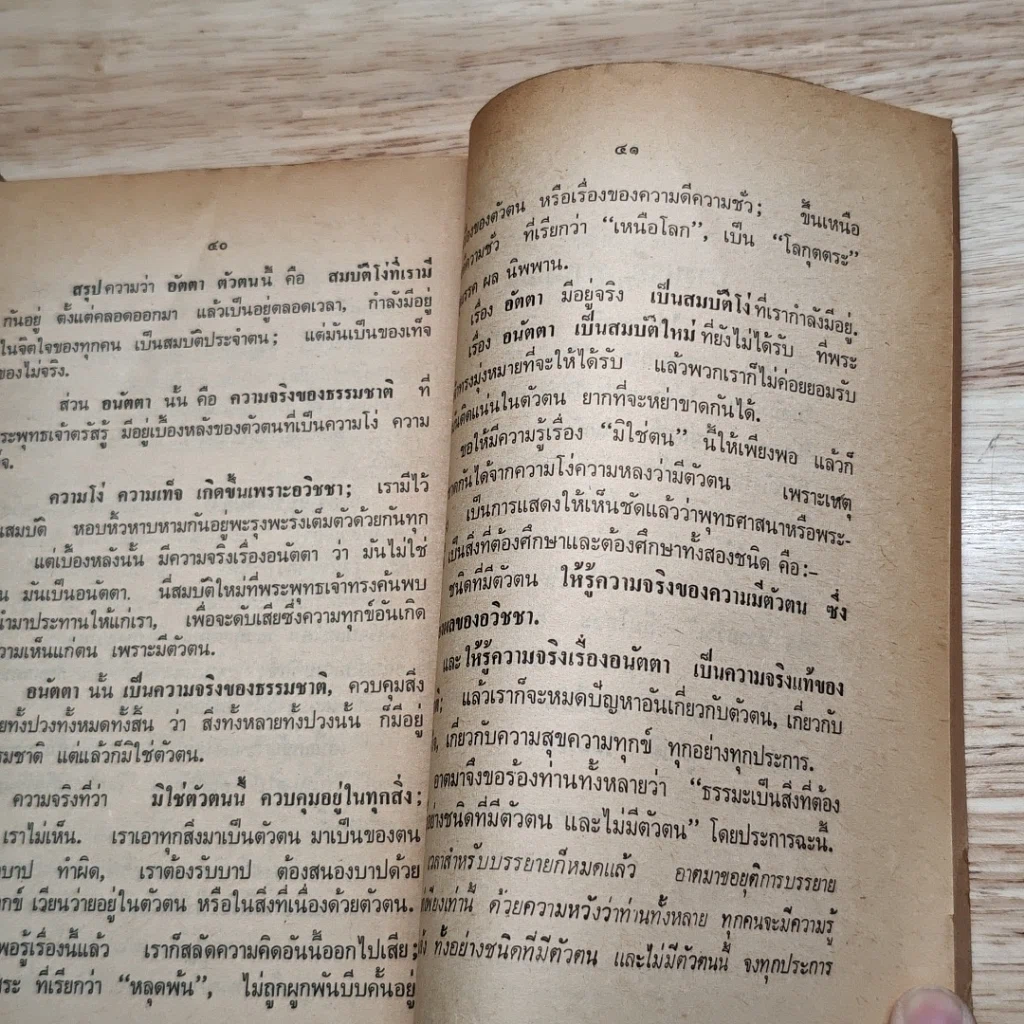 ๔๐
สรุปความว่า อัตตา ตัวตนนี้ คือ สมบัติโง่ที่เรามี
กันอยู่ ตั้งแต่คลอดออกมา แล้วเป็นอยู่ตลอดเวลา, กำลังมีอยู่
ในจิตใจของทุกคน เป็นสมบัติประจำตน; แต่มันเป็นของเท็จ
ของไม่จริง.
ส่วน อนัตตา นั้น คือ ความจริงของธรรมชาติ ที่
พระพุทธเจ้าตรัสรู้ มีอยู่เบื้องหลังของตัวตนที่เป็นความโง่ ความ
ความโง่ ความเท็จ เกิดขึ้นเพราะอวิชชา; เรามีไว้
สมบัติ หอบหิ้วหาบหามกันอยู่พะรุงพะรังเต็มตัวด้วยกันทุก
แต่เบื้องหลังนั้น มีความจริงเรื่องอนัตตา ว่า มันไม่ใช่
มันเป็นอนัตตา. นี่สมบัติใหม่ที่พระพุทธเจ้าทรงค้นพบ
นำมาประทานให้แก่เรา, เพื่อจะดับเสียซึ่งความทุกข์อันเกิด
ความเห็นแก่ตน เพราะมีตัวตน.
อนัตตา นั้น เป็นความจริงของธรรมชาติ, ควบคุมสิ่ง
ทั้งปวงทั้งหมดทั้งสิ้น ว่า สิ่งทั้งหลายทั้งปวงนั้น ก็มีอยู่
แต่แล้วก็มิใช่ตัวตน.
ความจริงที่ว่า มิใช่ตัวตนนี้ ควบคุมอยู่ในทุกสิ่ง;
เราไม่เห็น. เราเอาทุกสิ่งมาเป็นตัวตน มาเป็นของตน
บาป ทำผิด, เราต้องรับบาป ต้องสนองบาปด้วย
เวียนว่ายอยู่ในตัวตน หรือในสิ่งที่เนื่องด้วยตัวตน.
พอรู้เรื่องนี้แล้ว เราก็สลัดความคิดอันนี้ออกไปเสีย;
ที่เรียกว่า “หลุดพ้น”, ไม่ถูกผูกพันบีบคั้นอยู่
๔๑
ของตัวตน หรือเรื่องของความดีความชั่ว; ขึ้นเหนือ
ความชั่ว ที่เรียกว่า “เหนือโลก”, เป็น “โลกุตตระ”
มรรค ผล นิพพาน.
เรื่อง อัตตา มีอยู่จริง เป็นสมบัติโง่ ที่เรากำลังมีอยู่.
เรื่อง อนัตตา เป็นสมบัติใหม่ ที่ยังไม่ได้รับ ที่พระ
ทรงมุ่งหมายที่จะให้ได้รับ แล้วพวกเราก็ไม่ค่อยยอมรับ
ติดแน่นในตัวตน ยากที่จะหย่าขาดกันได้.
ขอให้มีความรู้เรื่อง “มิใช่ตน” นี้ให้เพียงพอ แล้วก็
กันได้จากความโง่ความหลงว่ามีตัวตน เพราะเหตุ
เป็นการแสดงให้เห็นชัดแล้วว่าพุทธศาสนาหรือพระ-
เป็นสิ่งที่ต้องศึกษาและต้องศึกษาทั้งสองชนิด คือ:–
ชนิดที่มีตัวตน ให้รู้ความจริงของความมีตัวตน ซึ่ง
ผลของอวิชชา.
และ ให้รู้ความจริงเรื่องอนัตตา เป็นความจริงแท้ของ
แล้วเราก็จะหมดปัญหาอันเกี่ยวกับตัวตน, เกี่ยวกับ
เกี่ยวกับความสุขความทุกข์ ทุกอย่างทุกประการ.
อาตมาจึงขอร้องท่านทั้งหลายว่า “ธรรมะเป็นสิ่งที่ต้อง
อย่างชนิดที่มีตัวตน และไม่มีตัวตน” โดยประการฉะนี้.
เวลาสำหรับบรรยายก็หมดแล้ว อาตมาขอยุติการบรรยาย
เพียงเท่านี้ ด้วยความหวังว่าท่านทั้งหลาย ทุกคนจะมีความรู้
ทั้งอย่างชนิดที่มีตัวตน และไม่มีตัวตนนี้ จงทุกประการ